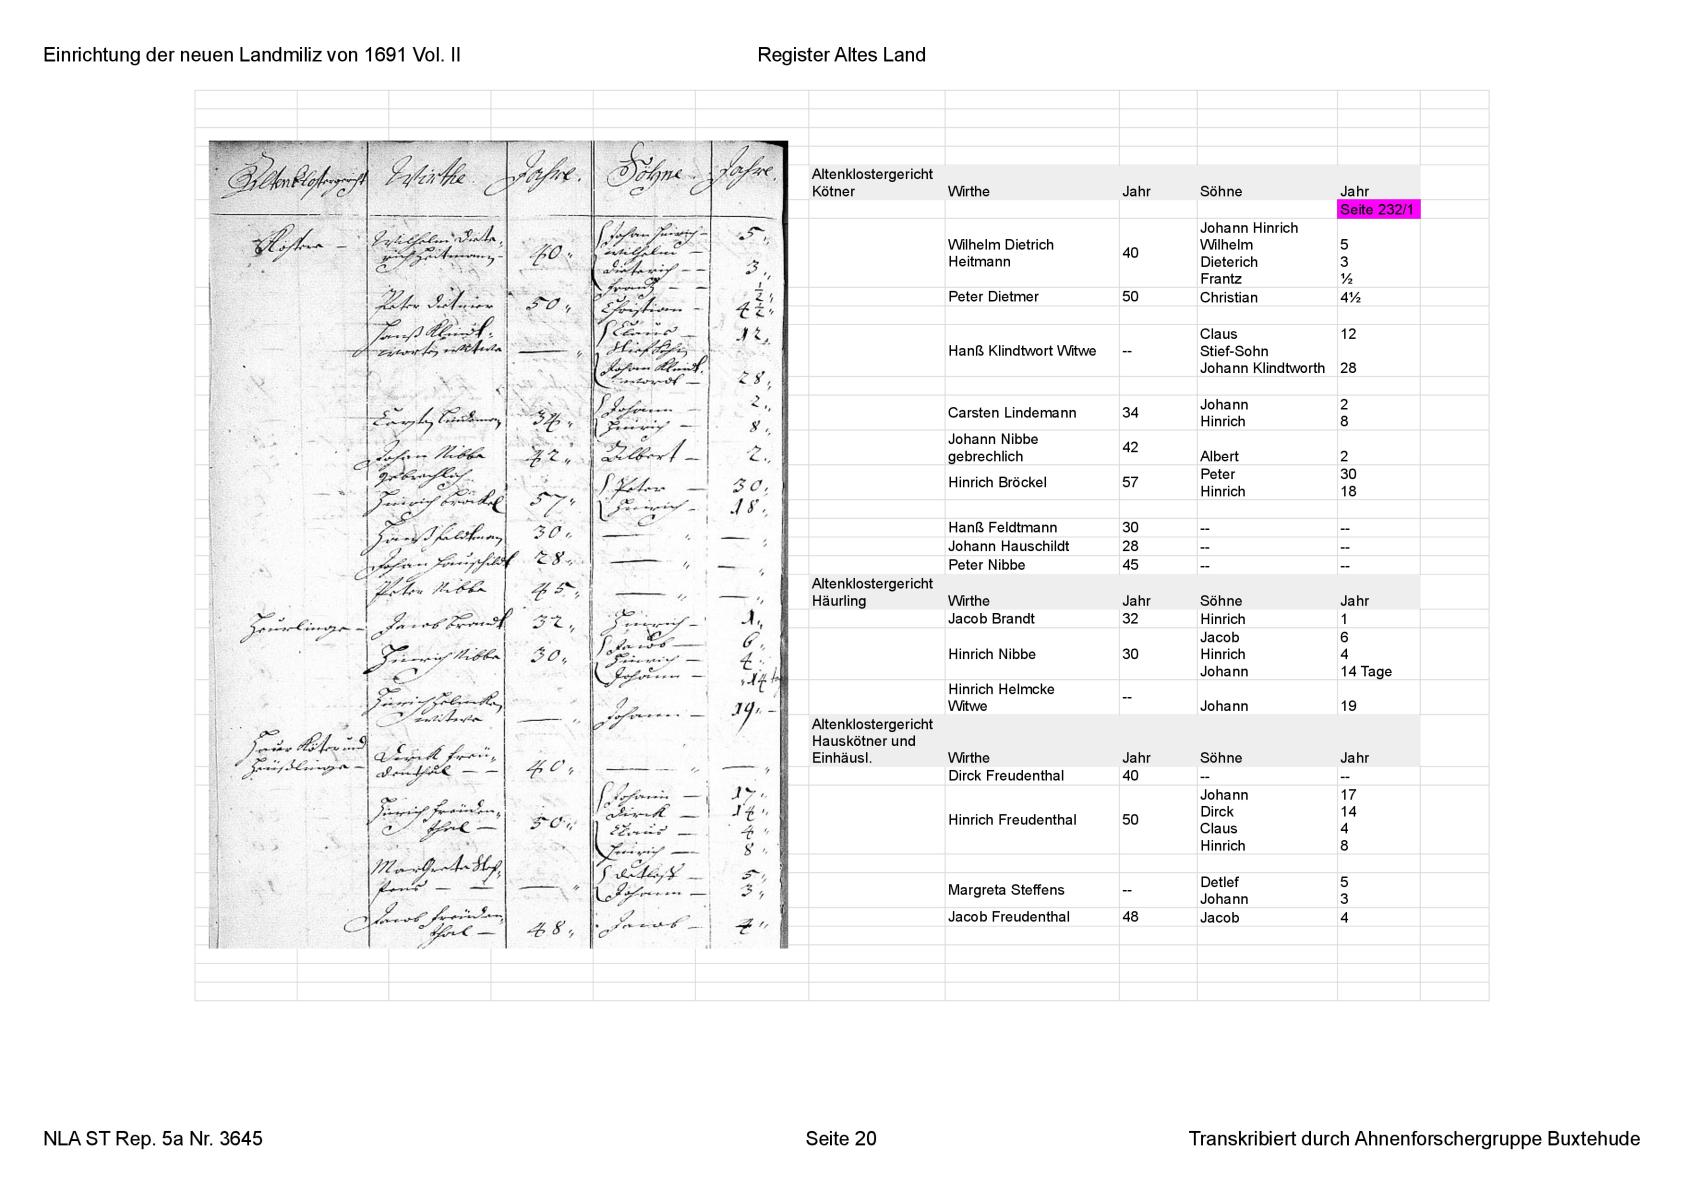 Einrichtung der neuen Landmiliz von 1691 Vol. II
Register Altes Land
Altenklostergericht Wirthe Jahre. Söhne Jahre.
Wilhelm Diete-
40
Johan Hinrich 5
Wilhelm
Dieterich 3
Frantz ½
Peter Dietmer 50 Christian 4½
Claus 12
Johan Klindt-
28
Carsten Lindeman 34
Johann 2
Hinrich 8
Johan Nibbe 42 Albert 2
gebrechlich
Hinrich Bröckel 57
Peter 30
Hinrich 18
Hanß Feldtman 30 — —
Johan Hauschildt 28 — —
Peter Nibbe 45 — —
Jacob Brandt 32 Hinrich 1
Hinrich Nibbe 30
Jacob 6
Hinrich 4
Johann 14
Hinrich Helmcke
Witwe — Johann 19
Dirck Freu-
denthal 40 — —
Hinrich Freuden-
thal 50
Johann 17
Dirck 14
Claus 4
Hinrich 8
Margreta Stef-
fens —
Detloff 5
Johann 3
Jacob Freuden-
thal 48 Jacob 4
Altenklostergericht
Kötner Wirthe Jahr Söhne Jahr
Seite 232/1
Johann Hinrich
Wilhelm Dietrich Wilhelm 5
Heitmann 40 Dieterich 3
Frantz ½
Peter Dietmer 50 Christian 4½
Claus 12
Hanß Klindtwort Witwe -- Stief-Sohn
Johann Klindtworth 28
Carsten Lindemann 34 Johann 2
Hinrich 8
Johann Nibbe 42
gebrechlich Albert 2
Hinrich Bröckel 57 Peter 30
Hinrich 18
Hanß Feldtmann 30 -- --
Johann Hauschildt 28 -- --
Peter Nibbe 45 -- --
Altenklostergericht
Häurling Wirthe Jahr Söhne Jahr
Jacob Brandt 32 Hinrich 1
Jacob 6
Hinrich Nibbe 30 Hinrich 4
Johann 14 Tage
Hinrich Helmcke --
Witwe Johann 19
Altenklostergericht
Hauskötner und
Einhäusl. Wirthe Jahr Söhne Jahr
Dirck Freudenthal 40 -- --
Johann 17
Hinrich Freudenthal 50 Dirck 14
Claus 4
Hinrich 8
Margreta Steffens -- Detlef 5
Johann 3
Jacob Freudenthal 48 Jacob 4
NLA ST Rep. 5a Nr. 3645
Seite 20
Transkribiert durch Ahnenforschergruppe Buxtehude